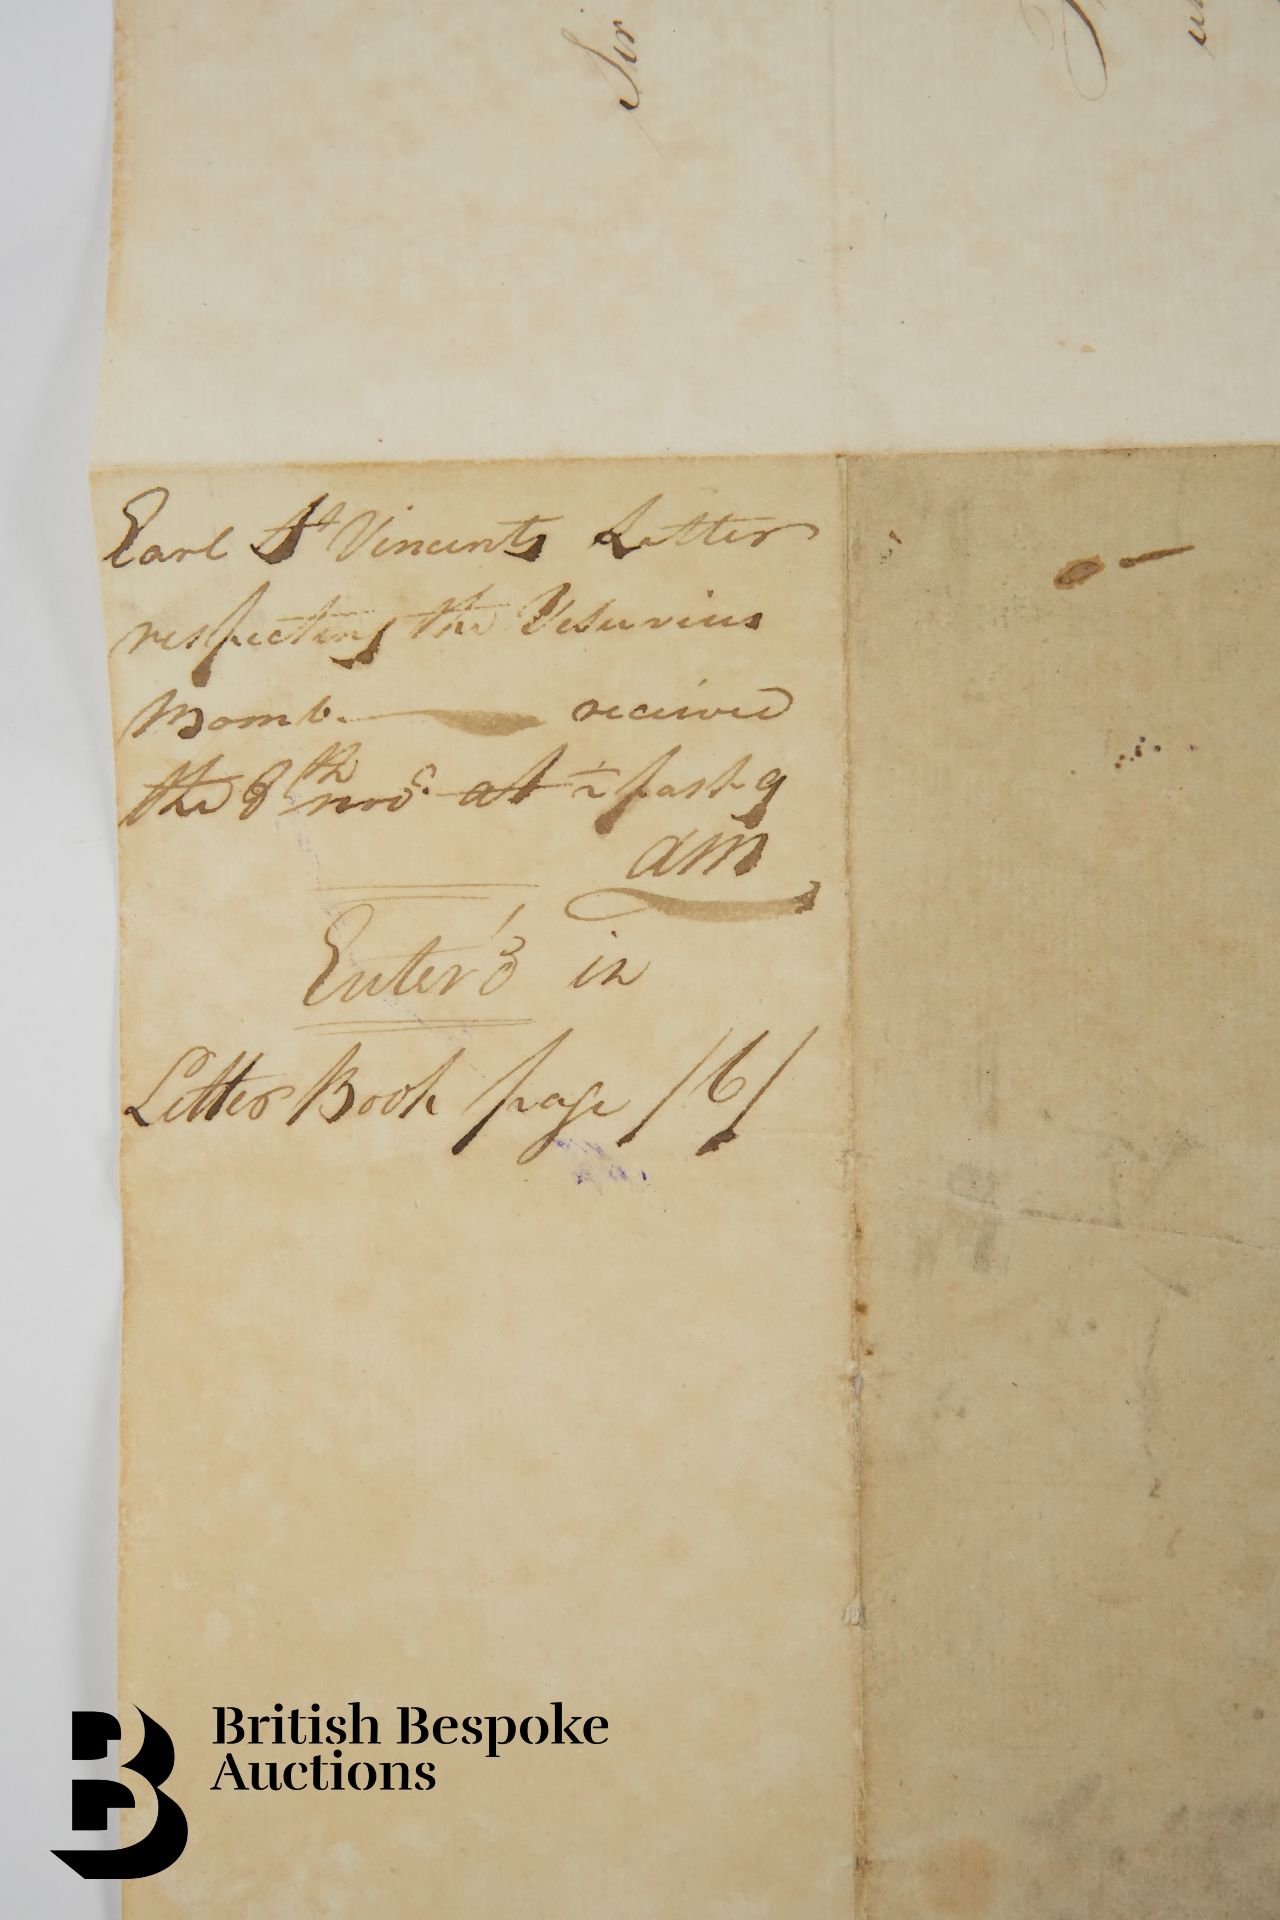 Sir
Earl St Vincents Letter
respecting the Vesuvius
Bomb. received
the 8th nov at ½ past 9
am
Enter'd in
Letter Book page 161
British Bespoke
Auctions